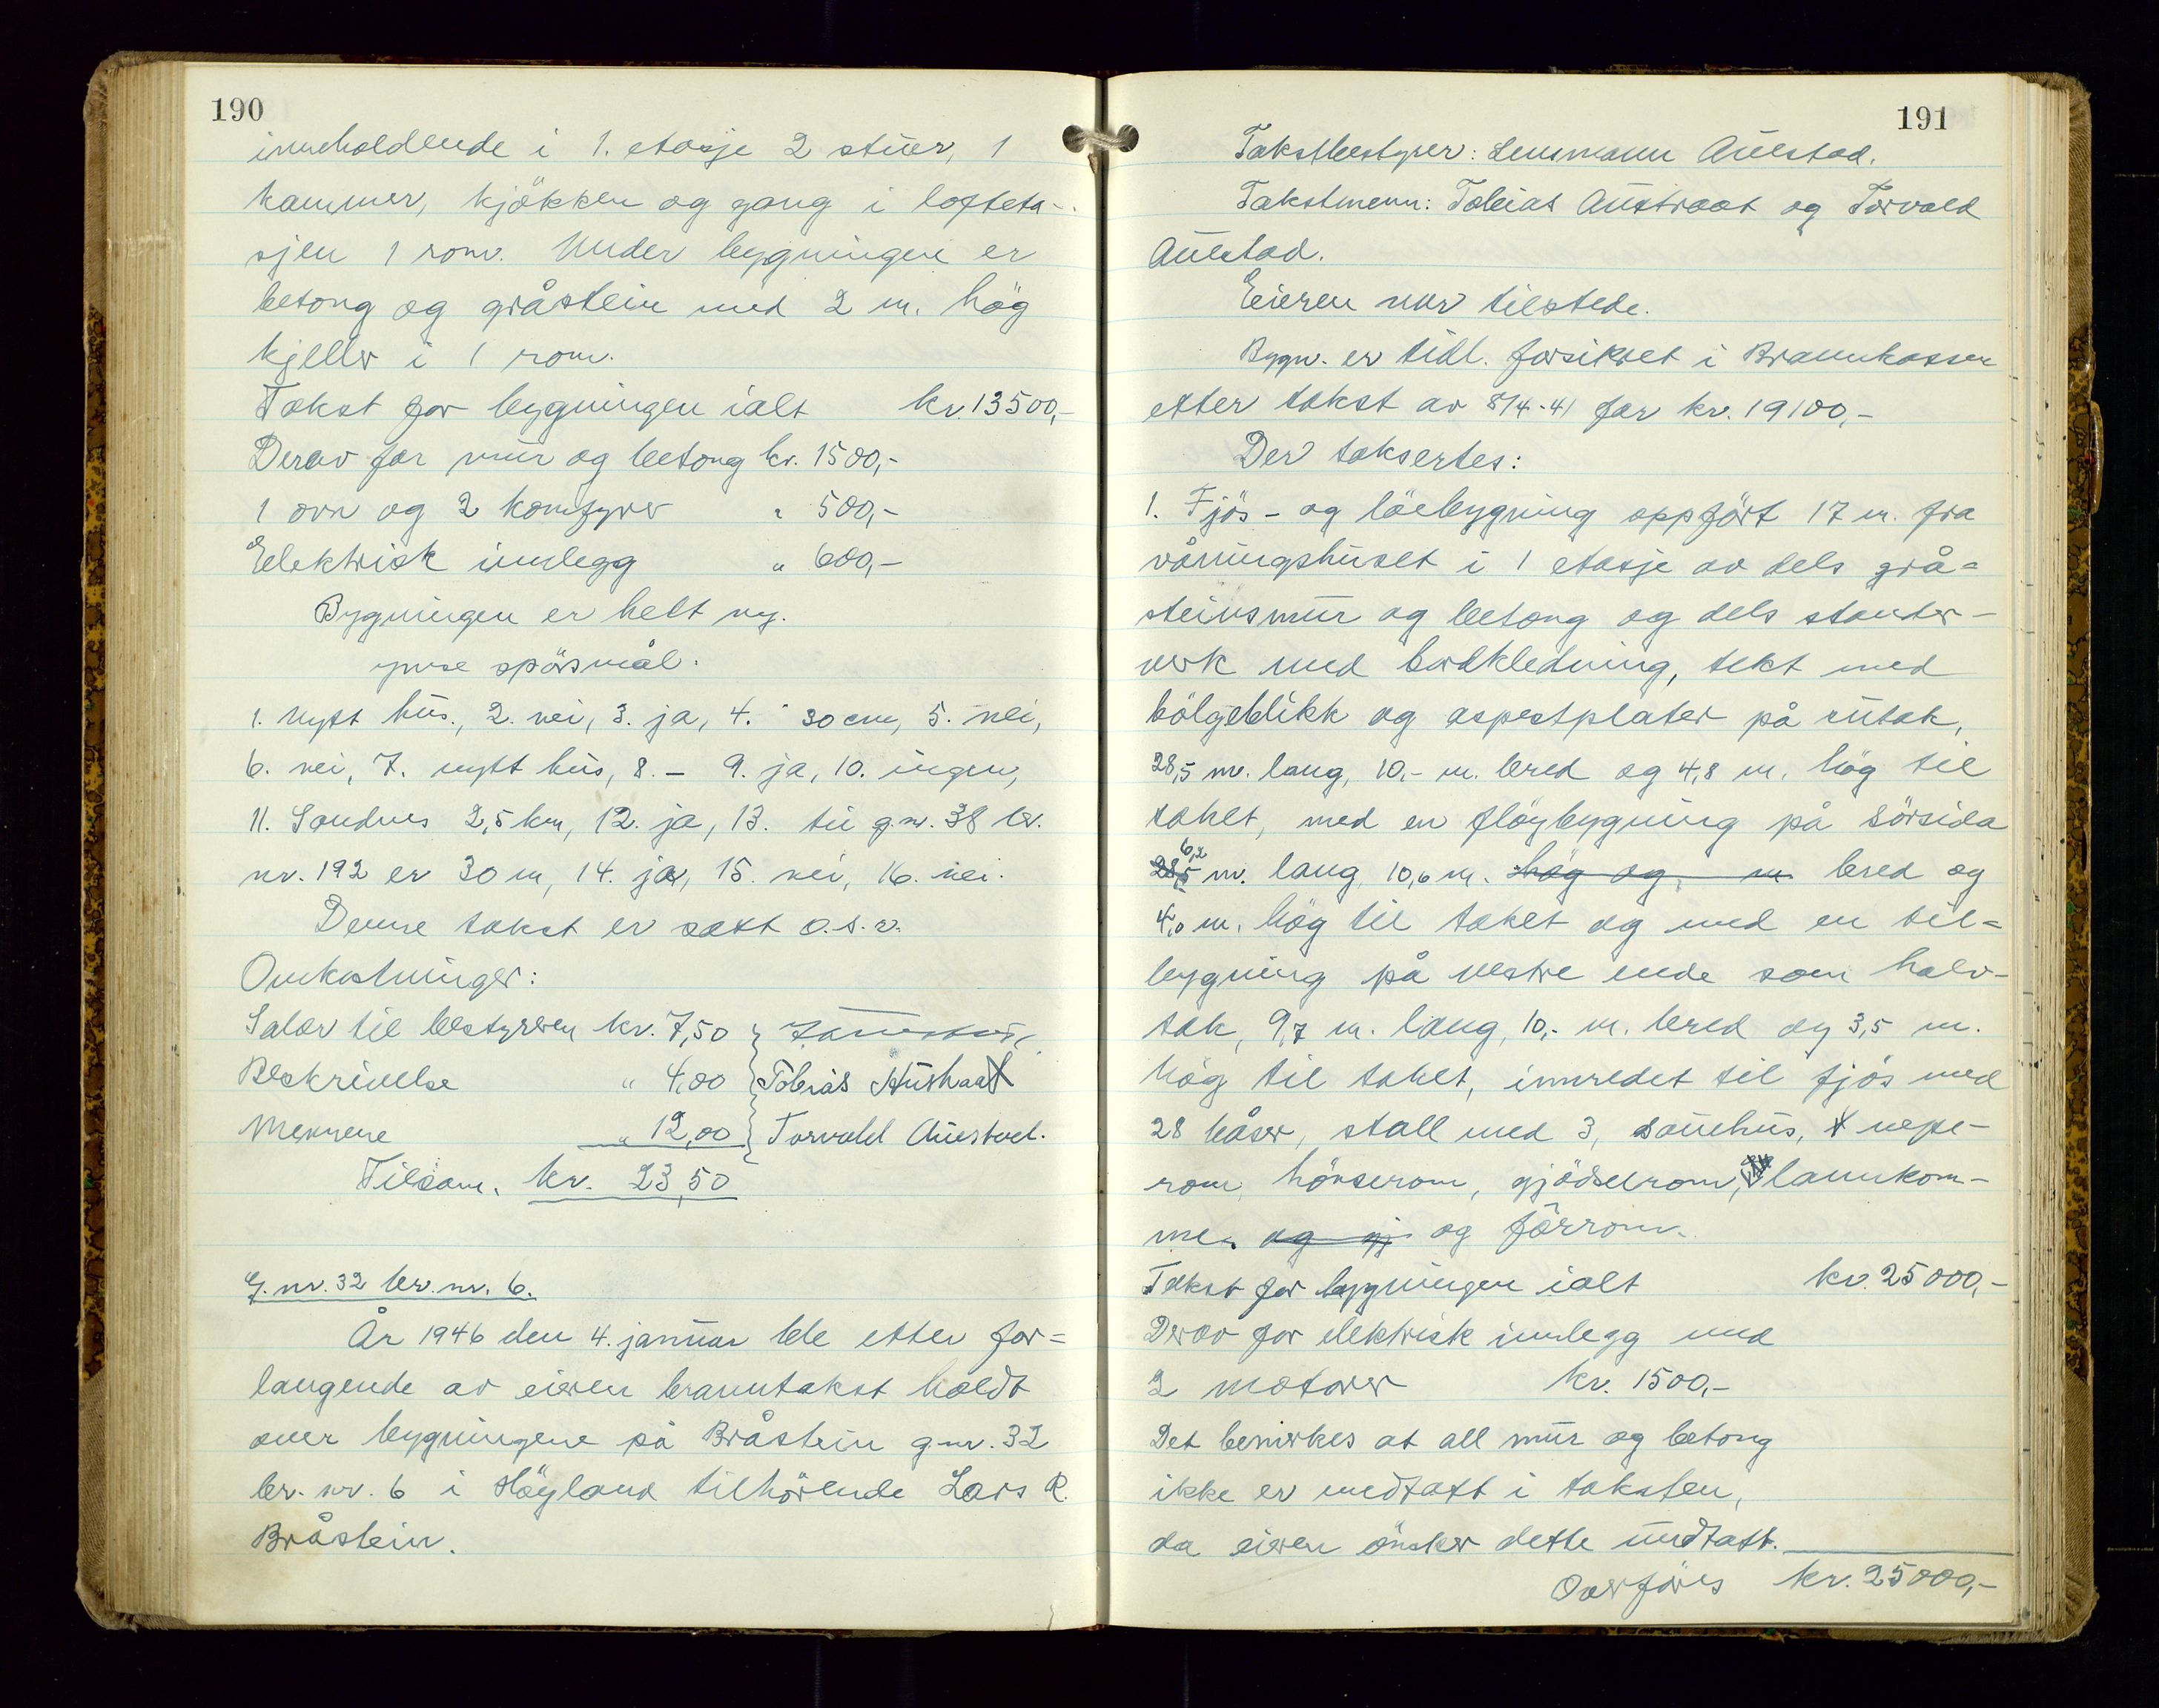 190
inneholdende i 1. etasje 2 stuer, 1
kammer, kjökken og gang i lofteta-
sjen 1 rom. Under bygningen er
betong og gråstein med 2 m. hög
kjeller i 1 rom.
Takst for bygningen ialt kr. 13500,-
Derav for mur og betong kr. 1500,-
1 ovn og 2 komfyrer " 500,-
Elektrisk innlegg " 600,-
Bygningen er helt ny.
ymse spörsmål.
1. nytt hus., 2. nei, 3. ja, 4. 30 cm, 5. nei,
6. nei, 7. nytt hus, 8. – 9. ja, 10. ingen,
11. Sandnes 2,5 km, 12. ja, 13. til g.nr. 38 br.
nr. 192 er 30 m, 14. ja, 15. nei, 16. nei.
Denne takst er satt o.s.v.
Omkostninger:
Salær til bestyreren kr. 7,50
Beskrivelse " 4,00 Tobias Austraat
Mennene " 12,00 Torvald Auestad.
Tilsam. kr. 23,50
G. nr. 32 br. nr. 6.
År 1946 den 4. januar ble etter for=
langende av eieren branntakst holdt
over bygningene på Bråstein g.nr. 32
br. nr. 6 i Höyland tilhörende Lars R.
Bråstein.
191
Takstbestyrer: Lensmann Auestad.
Takstmenn: Tobias Austraat og Torvald
Auestad.
Eieren var tilstede.
Bygn. er tidl. forsikret i Brannkassen
etter takst av 8/4-41 for kr. 19100,-
Der taksertes:
1. Fjös- og löebygning oppfört 17 m. fra
våningshuset i 1 etasje av dels grå=
steinsmur og betong og dels stender-
verk med bordkledning, tekt med
bölgeblikk og aspestplater på sutak,
28,5 m. lang, 10,- m. bred og 4,8 m. hög til
taket, med en flöybygning på sörsida
28,5 6,2 m. lang, 10,6 m. hög og m. bred og
4,0 m. hög til taket og med en til=
bygning på vestre ende som halv-
tak, 9,7 m. lang, 10,- m. bred og 3,5 m.
hög til taket, innredet til fjös med
28 båser, stall med 3, sauehus, nepe-
rom, hönserom, gjödselrom, lannkom-
me og gj og fôrrom.
Takst for bygningen ialt kr. 25000,-
Derav for elektrisk innlegg med
2 motorer kr. 1500,-
Det bemerkes at all mur og betong
ikke er medtatt i taksten,
da eieren önsker dette undtatt.
Overföres kr. 25000,-